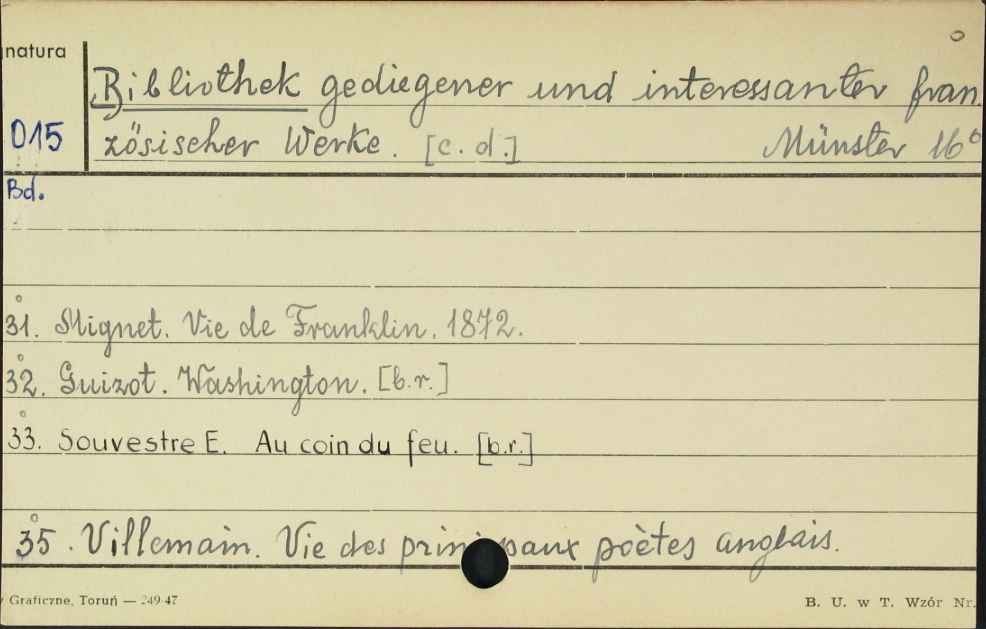 natura
Bibliothek gediegener und interessanter fran
015 zösischer Werke. [c. d.] Münster 16°
Bd.
31. Mignet. Vie de Franklin. 1872.
32. Guizot. Washington. [b.r.]
33. Souvestre E. Au coin du feu. [b.r.]
35. Villemain. Vie des prin paux poètes anglais.
Graficzne, Toruń — 249-47 B. U. w T. Wzór Nr.